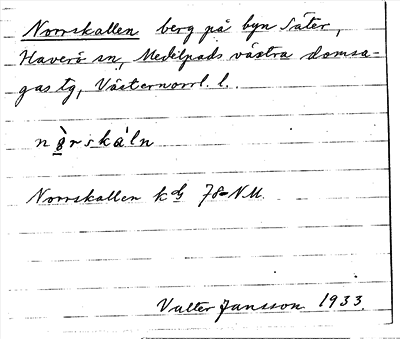 Norrskallen berg på byn Säter,
Haverö sn, Medelpads västra domsa-
gas tg, Västernorrl. l.
nòrskáln
Norrskallen kds 78-NV.
Valter Jansson 1933.